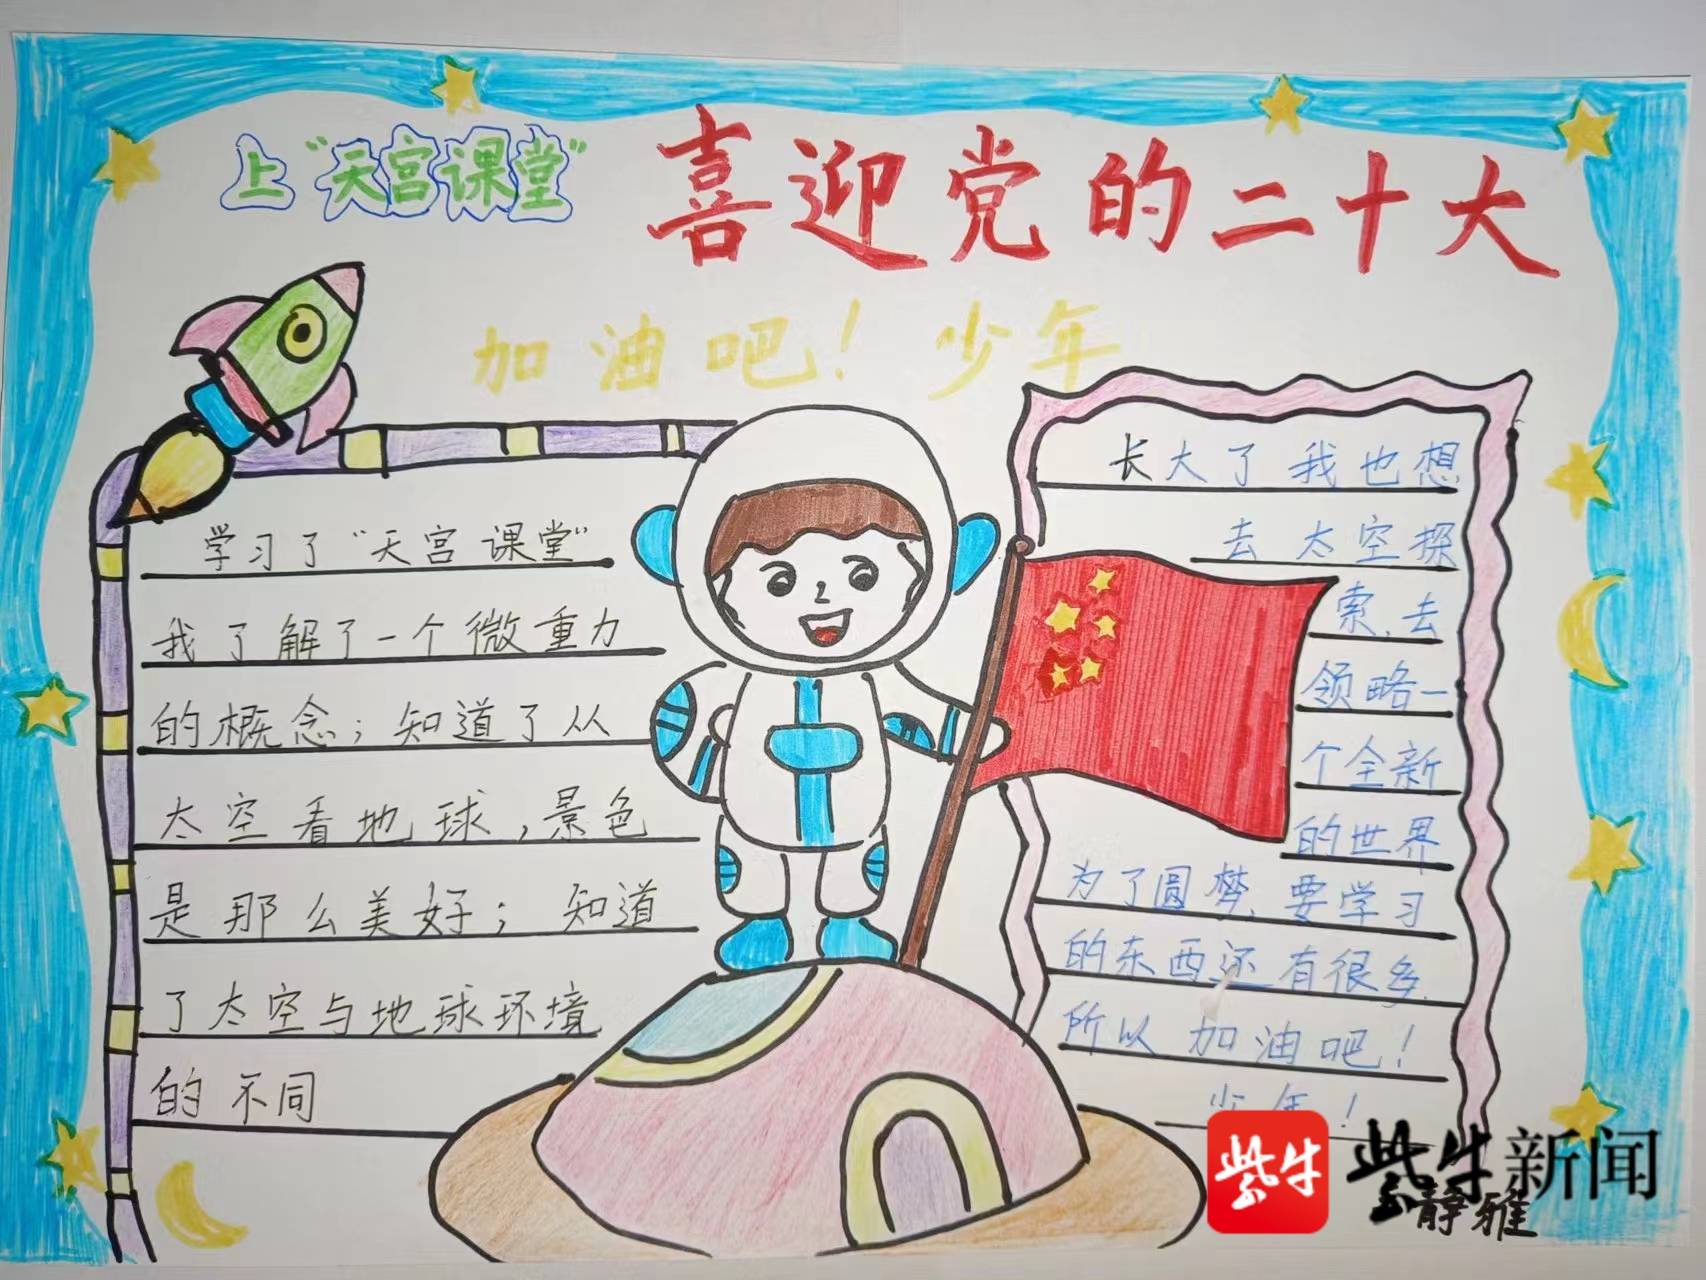 上“天宫课堂”
喜迎党的二十大
加油吧！少年
学习了“天宫课堂”
我了解了一个微重力
的概念；知道了从
太空看地球，景色
是那么美好；知道
了太空与地球环境
的不同
长大了我也想
去太空探
索，去
领略一
个全新
的世界
为了圆梦，要学习
的东西还有很多，
所以加油吧！
少年！
紫牛
紫牛新闻
静雅